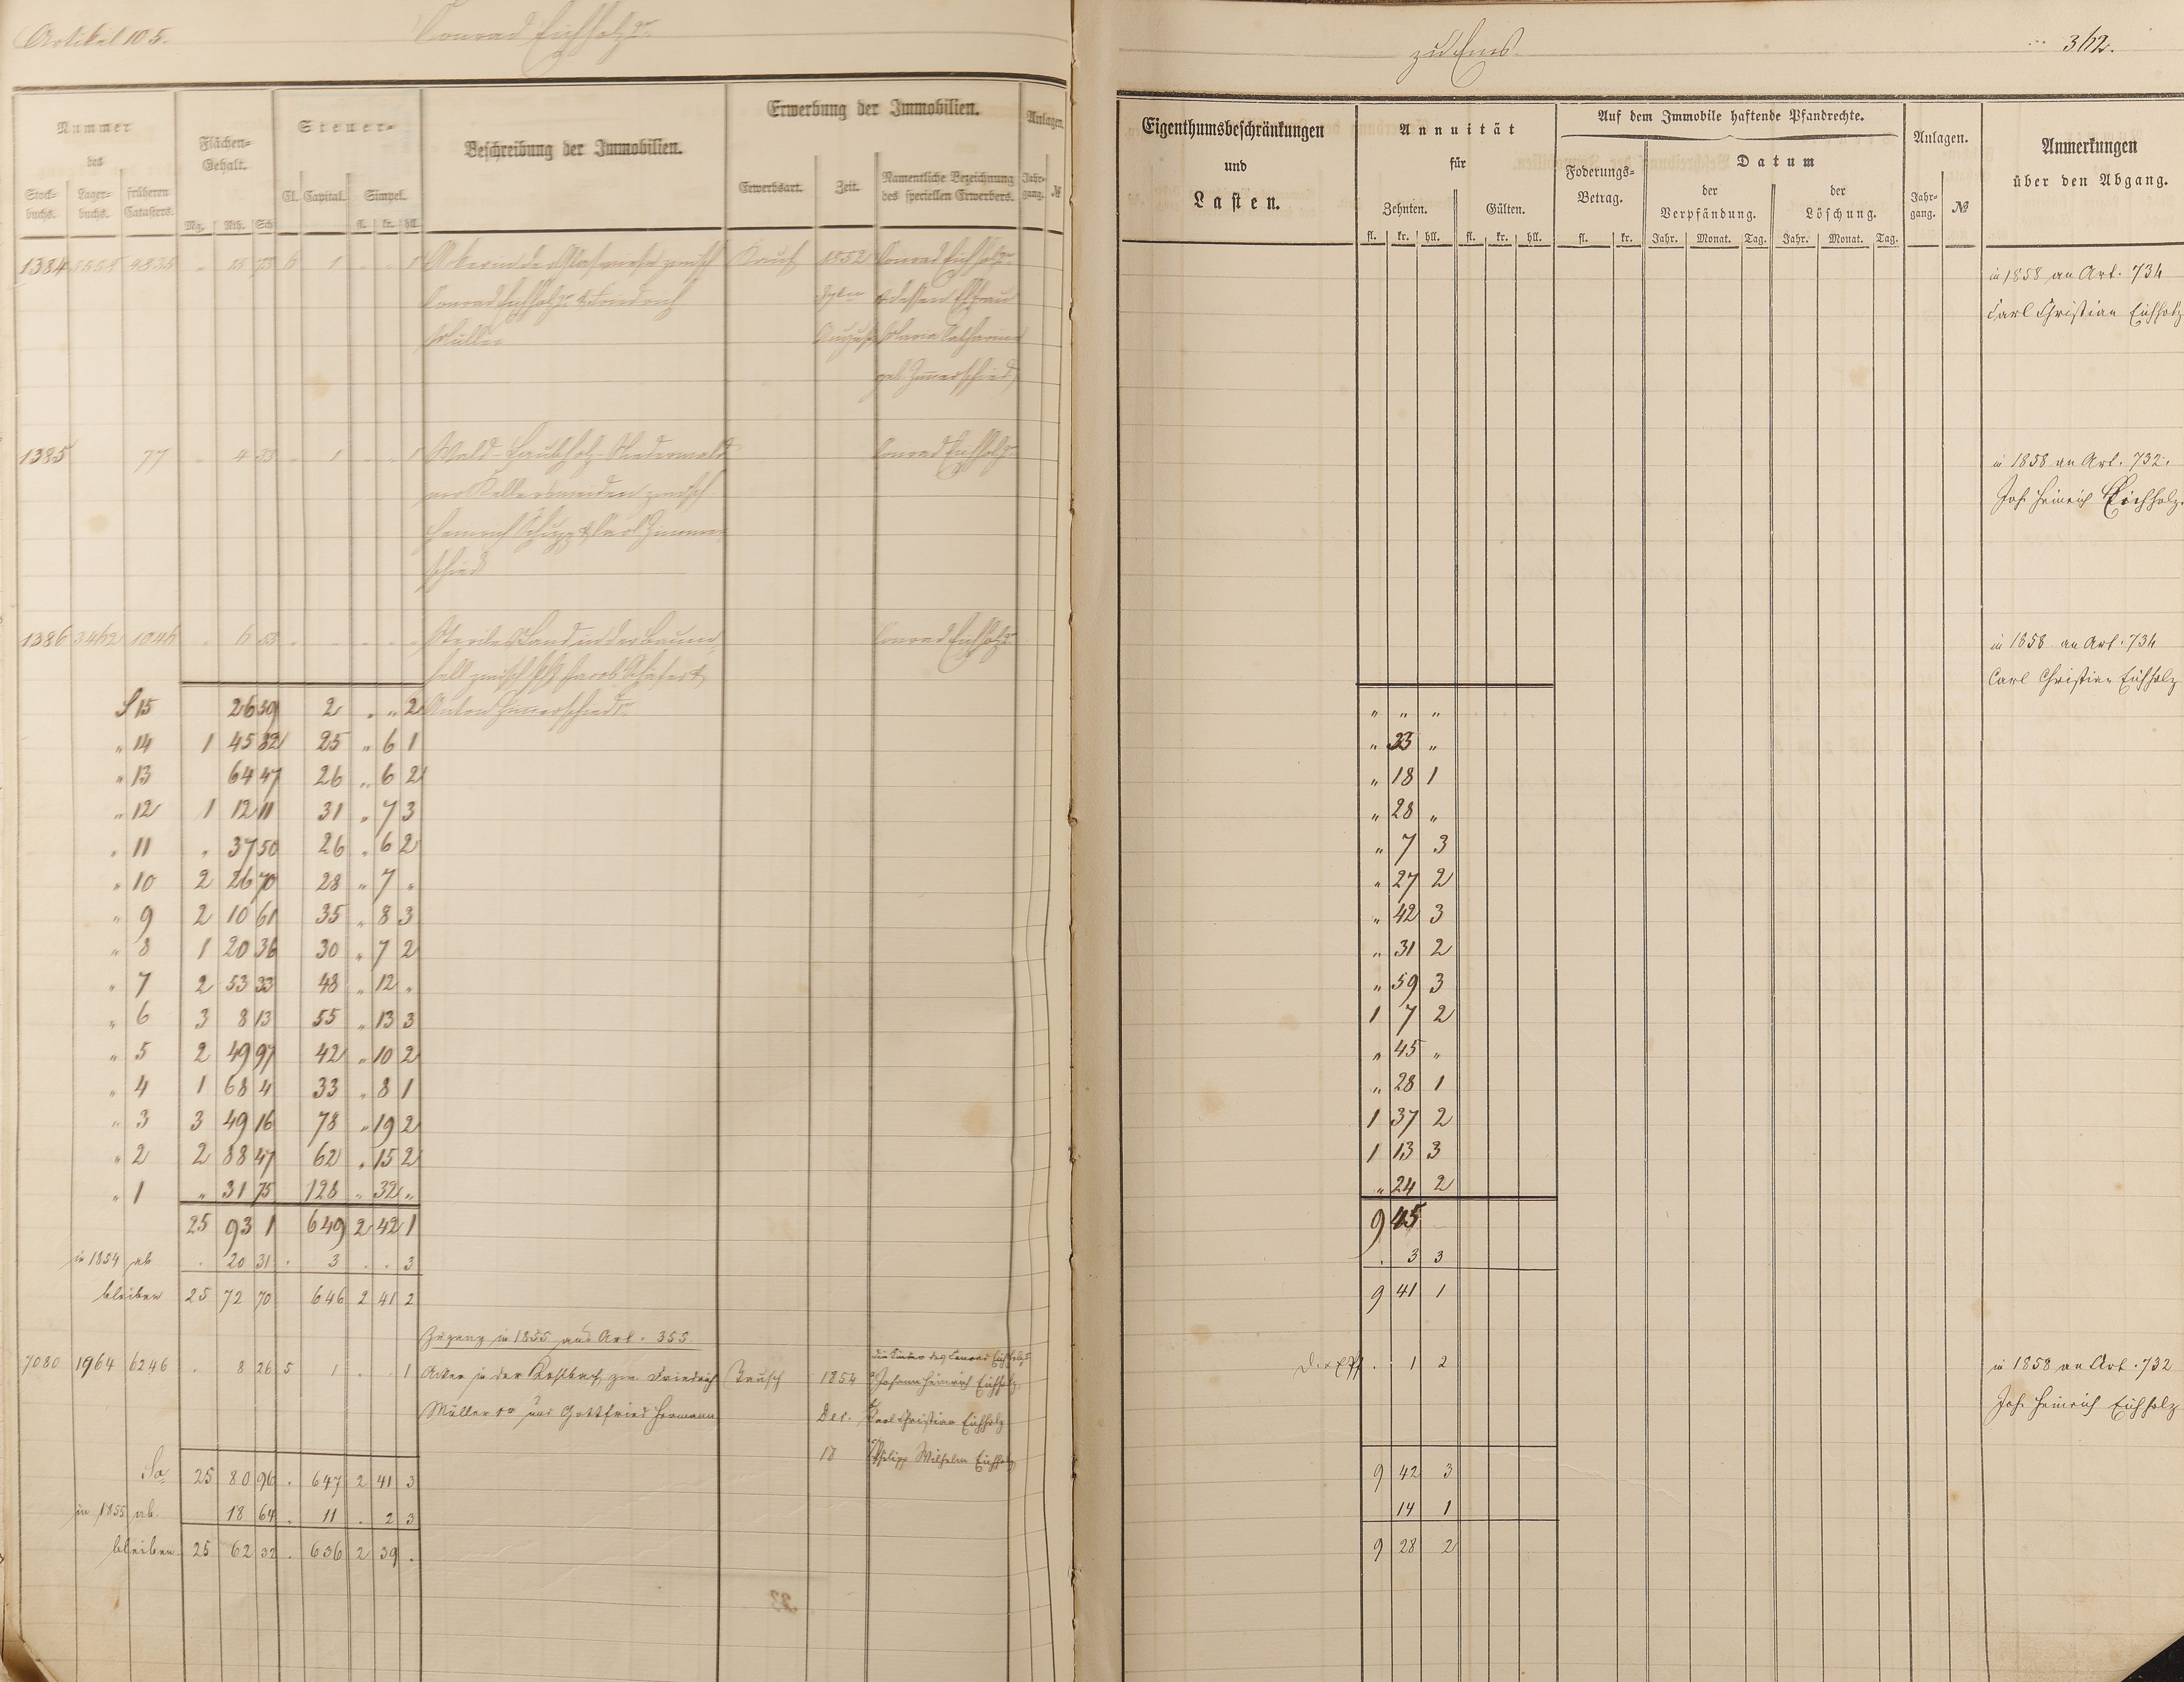 Artikel 105.
Conrad Eichholz
zu Ems.
362.
Nummer des
Stock- buchs.
Lager- buchs.
früheren Catasters.
Flächen- Gehalt.
Mg. Rth. Sch.
Steuer-
Cl. Capital. Simpel.
fl. kr. hll.
Beschreibung der Immobilien.
Erwerbung der Immobilien.
Erwerbsart. Zeit. Namentliche Bezeichnung des speciellen Erwerbers.
Anlagen.
Jahr- gang. №
Eigenthumsbeschränkungen
und
Lasten.
Annuität
für
Zehnten. Gülten.
fl. kr. hll. fl. kr. hll.
Auf dem Immobile haftende Pfandrechte.
Foderungs- Betrag.
fl. kr.
Datum
der Verpfändung.
der Löschung.
Jahr. Monat. Tag. Jahr. Monat. Tag.
Anlagen.
Jahr- gang. №
Anmerkungen
über den Abgang.
1384 4835 " 15 6 1 " " 1 Acker in der zwisch Kauf 1852 Conrad Eichholz
in 1858 an Art. 734
Conrad Eichholz & Friedrich & dessen Ehefrau
Carl Christian Eichholz
Müller August Maria Catharina
geb. Zimerschied
1385 77 " 4 33 " 1 " " 1 Wald-Laubholz-Niederwald Conrad Eichholz
in 1858 an Art. 732.
zwisch
Joh. Heinrich Eichholz.
Heinrich Schupp & Carl Zimmer
schied
1386 3462 1046 " 6 53 Land in der Conrad Eichholz
in 1858 an Art. 734
zwisch Jacob Schäfer &
Carl Christian Eichholz
S 15 26 59 2 " " 2 Anton Zimerschied
" " "
" 14 1 45 82 25 " 6 1
" 33 "
" 13 64 47 26 " 6 2
" 18 1
" 12 1 12 11 31 " 7 3
" 28 "
" 11 " 37 50 26 " 6 2
" 7 3
" 10 2 26 70 28 " 7 "
" 27 2
" 9 2 10 61 35 " 8 3
" 42 3
" 8 1 20 36 30 " 7 2
" 31 2
" 7 2 53 33 48 " 12 "
" 59 3
" 6 3 8 13 55 " 13 3
1 7 2
" 5 2 49 97 42 " 10 2
" 45 "
" 4 1 68 4 33 " 8 1
" 28 1
" 3 3 49 16 78 " 19 2
1 37 2
" 2 2 88 47 62 " 15 2
1 13 3
" 1 " 31 75 128 " 32 "
" 24 2
25 93 1 649 2 42 1
9 45
in 1854 ab . 20 31 . 3 . . 3
. 3 3
bleiben 25 72 70 646 2 41 2
9 41 1
Zugang in 1855 aus Art. 355.
die Kinder des Conrad Eichholz
7080 1964 6246 . 8 26 5 1 . . 1 Acker in der zw. Friedrich Tausch 1854 Johann Heinrich Eichholz
. 1 2
in 1858 an Art. 732
Müller und Gottfried Hermann Dec. Carl Christian Eichholz
Joh. Heinrich Eichholz
18 Philipp Wilhelm Eichholz
Sa 25 80 96 . 647 2 41 3
9 42 3
in 1855 ab. 18 64 . 11 . 2 3
14 1
bleiben 25 62 32 . 636 2 39 .
9 28 2